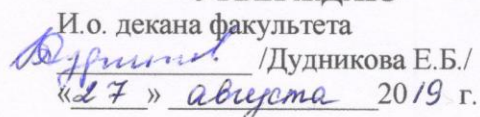 И.о. декана факультета
/Дудникова Е.Б./
«27» августа 2019 г.